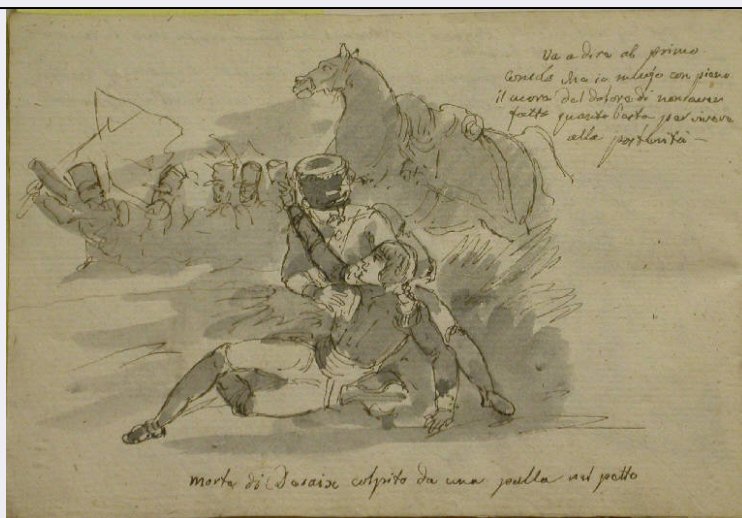 Va a dire al primo
Console che io muojo con
il cuore del dolore di non aver
fatto quanto basta per vivere
alla posterità —
morte di Desaix colpito da una palla nel petto